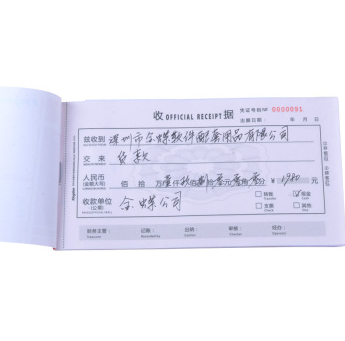 收 OFFICIAL RECEIPT 据
凭证号数№ 0000091
出单日期： 年 月 日
兹收到 深圳市金蝶软件配套用品有限公司
交来 货款
人民币 佰 拾 万 壹 仟 玖 佰 捌 拾 零 元 零 角 零 分 ¥ 1980 元
(金额大写)
收款单位 金蝶公司
(公章)
转账 现金
支票 其他
财务主管： 记账： 出纳： 审核： 经办：